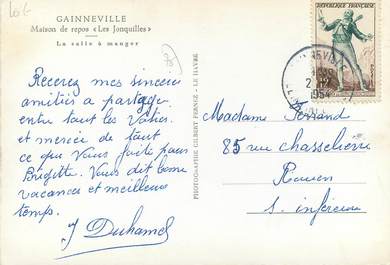 GAINNEVILLE
Maison de repos «Les Jonquilles»
La salle à manger
Recevez mes sincères
amitiés a partager
entre tout les Vôtres
et merci de tout
ce que Vous faite pour
Brigitte. Vous dit bonne
vacances et meilleurs
temps.
J Duhamel
PHOTOGRAPHIE GILBERT FERNEZ - LE HAVRE
REPUBLIQUE FRANÇAISE
1954
Madame Ferrand
85 rue Chasselièvre
Rouen
S. inférieure